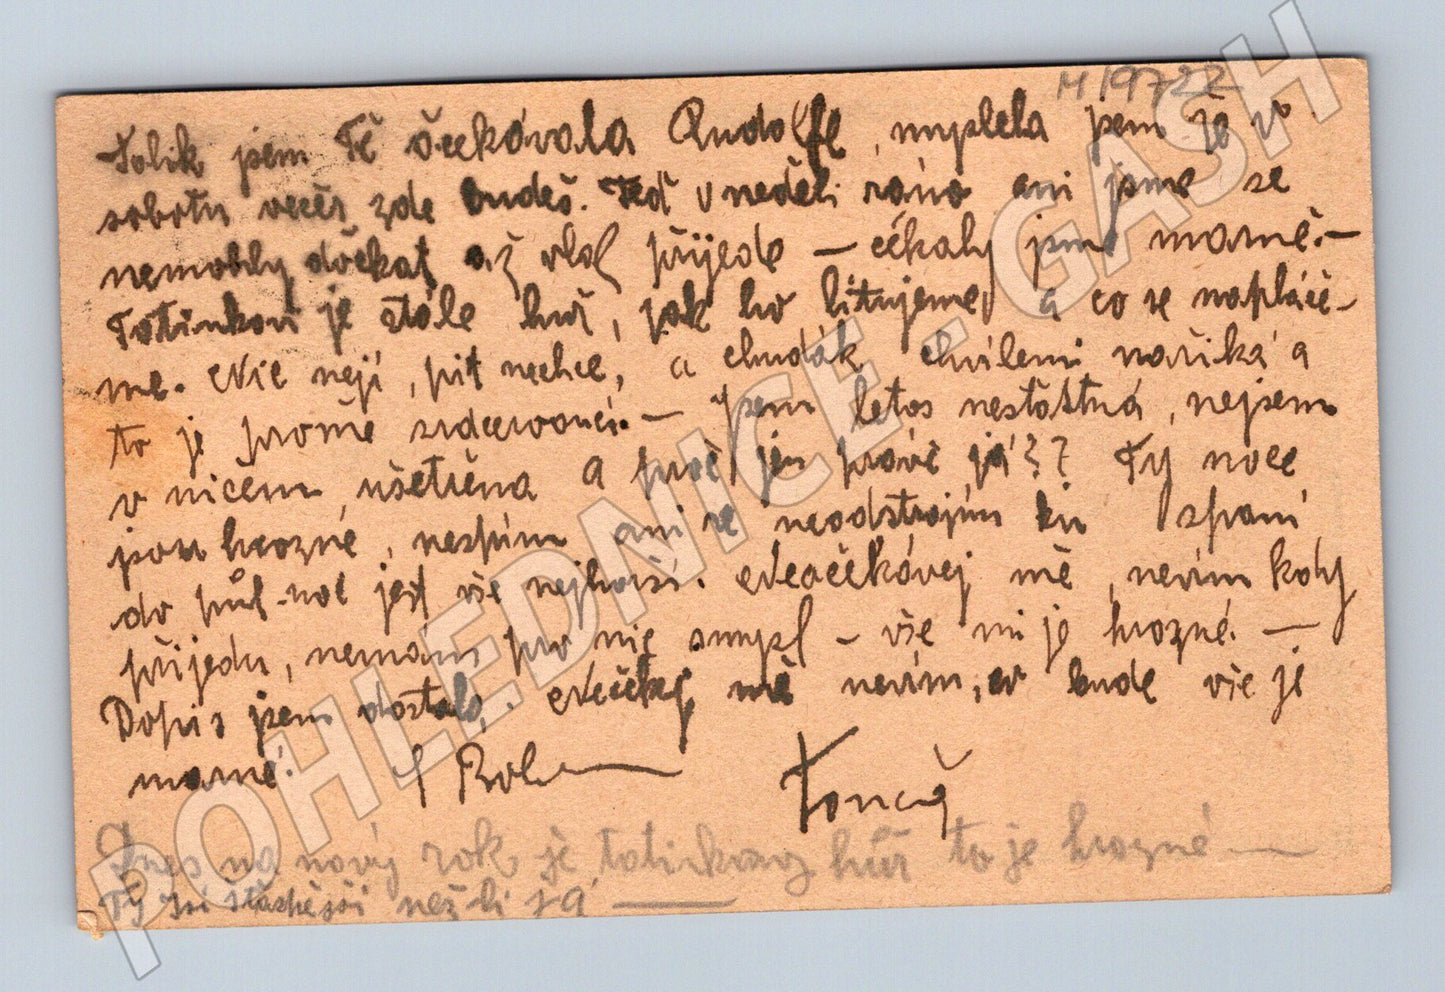 M 19722
Tolik jem Tě očekávala Rudolfe, myslela jsem že v
sobotu večer zde budeš. Teď v neděli ráno ani jsme se
nemohly dočkat až vlak přijede – čekaly jsme marně. –
Tatínkovi je stále hůř, jak ho litujeme, a co se napláče-
me. Nic nejí, pít nechce, a chudák chvílemi naříká a
to je prostě srdcervoucí. – Jsem letos nešťastná, nejsem
v ničem ušetřena a proč jen právě já?? Ty noce
jsou hrozné, nespím ani se neodstrojím ku spaní
do půl-noc jest vše nejhorší. Neočekávej mě, nevím kdy
přijedu, nemám pro nic smysl – vše mi je hrozné. —
Dopis jsem dostala. Nečekej mě nevím, co bude vše je
marné. S Bohem Tonča
Dnes na nový rok je tatínkovy hůř to je hrozné —
Ty jsi šťastnější nežli já —
POHLEDNICE - GASH